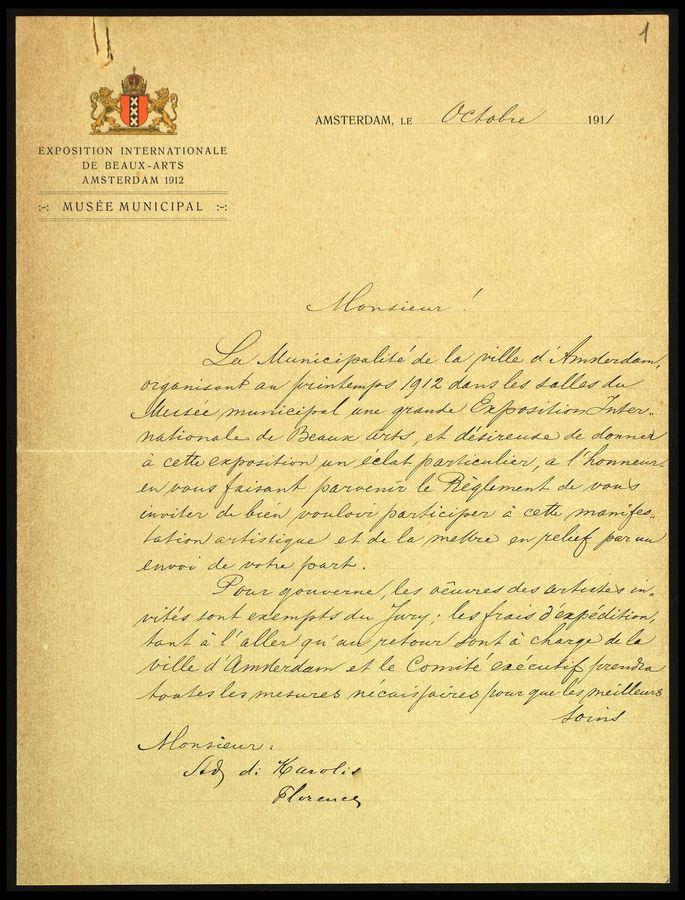 1
EXPOSITION INTERNATIONALE
DE BEAUX-ARTS
AMSTERDAM 1912
MUSÉE MUNICIPAL
AMSTERDAM, LE Octobre 1911
Monsieur!
La Municipalité de la ville d'Amsterdam,
organisant au printemps 1912 dans les salles du
Musée municipal une grande Exposition Inter„
nationale de Beaux Arts, et désireuse de donner
à cette exposition un éclat particulier, a l'honneur,
en vous faisant parvenir le Règlement de vous
inviter de bien vouloir participer à cette manifes„
tation artistique et de la mettre en relief par un
envoi de votre part.
Pour gouverne, les oeuvres des artistes in„
vités sont exempts du Jury; les frais d'expédition,
tant à l'aller qu'au retour sont à charge de la
ville d'Amsterdam et le Comité exécutif prendra
toutes les mesures nécaissaires pour que les meilleurs
soins
Monsieur:
di Karolis
Florence